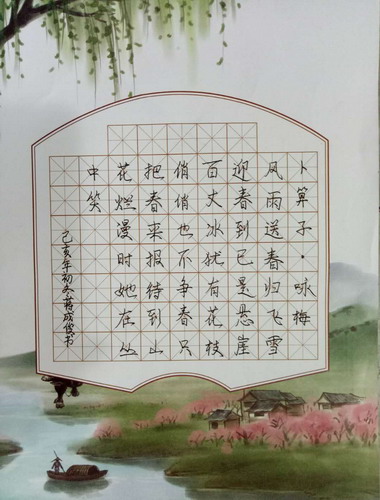 卜算子·咏梅
风雨送春归飞雪
迎春到已是悬崖
百丈冰犹有花枝
俏俏也不争春只
把春来报待到山
花烂漫时她在丛
中笑
己亥年初冬蒋成俊书